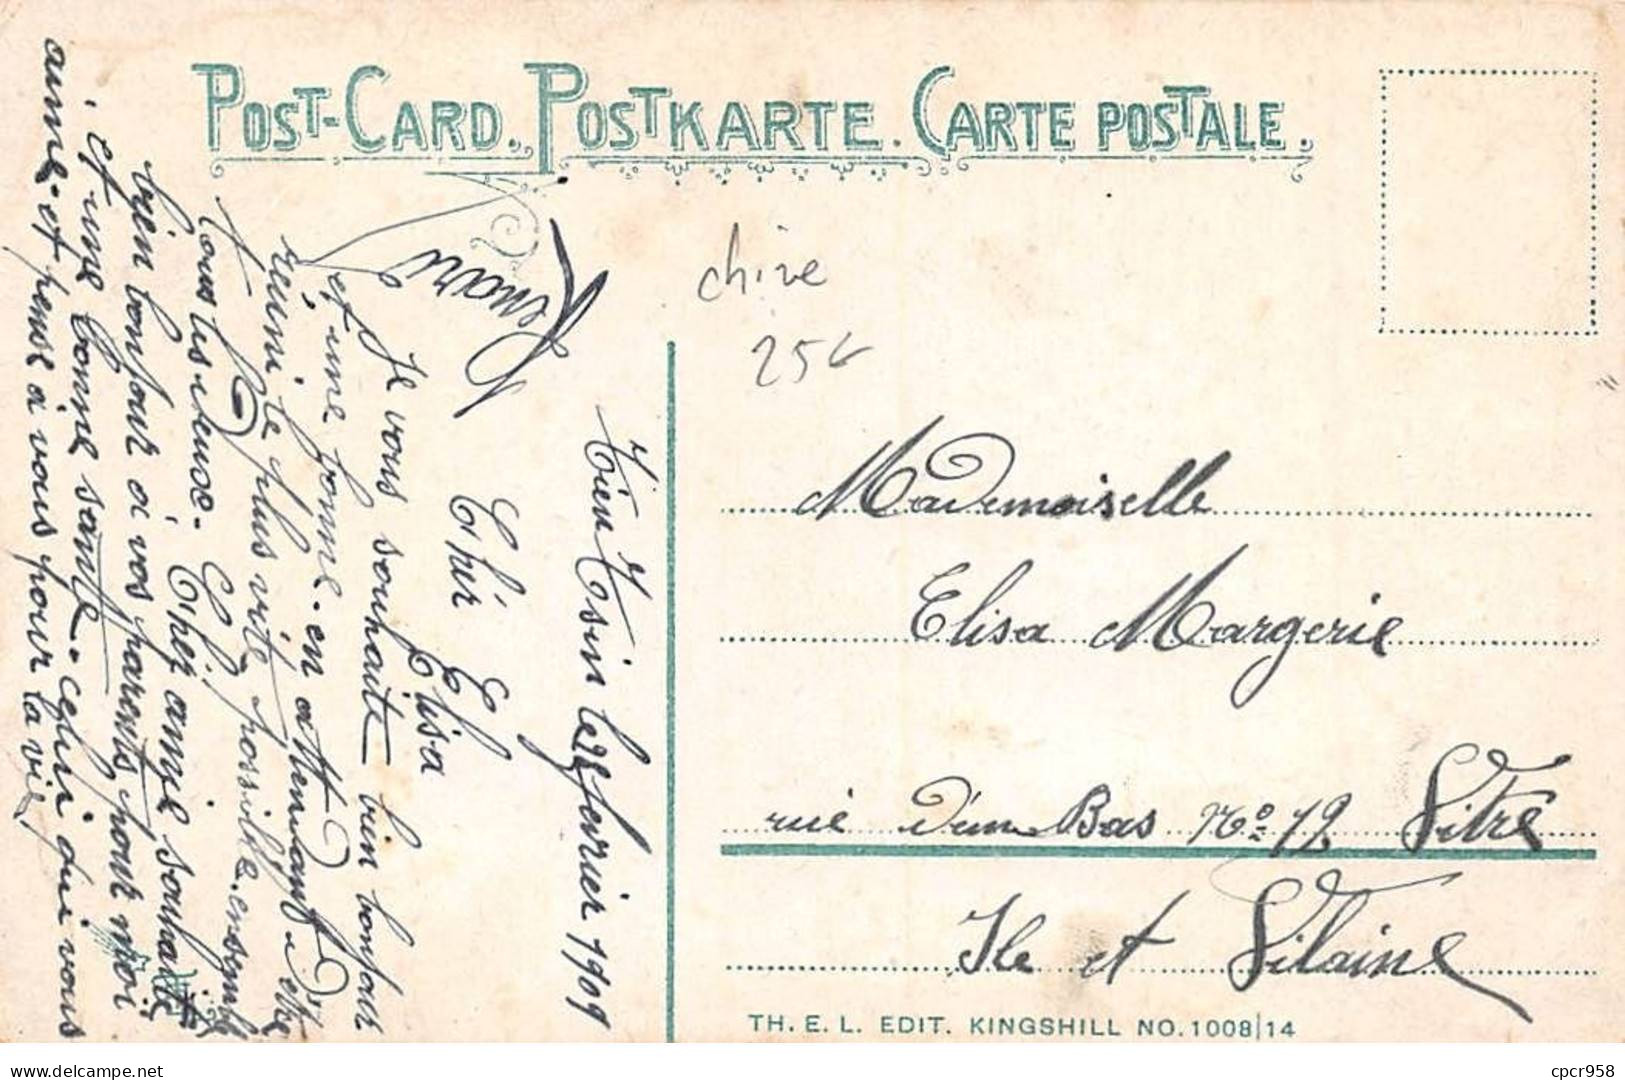 POST-CARD. POSTKARTE. CARTE POSTALE.
chine
25€
Tien Tsin le 2 fevrier 1909
Cher Elisa
Je vous souhaite bien bonjour
et une bonne. en attendant d'etre
reuni le plus vite possible. ensemble
tous les deux.
Chez amie souhaite
bien bonjour à vos parents pour moi
et une bonne santé. celui qui vous
aime et pense à vous pour la vie,
Mademoiselle
Elisa Margerie
rue d'en Bas No 19 Vitré
Ile et Vilaine
TH. E. L. EDIT. KINGSHILL NO. 1008/14
Delcampe.net
cpcr958